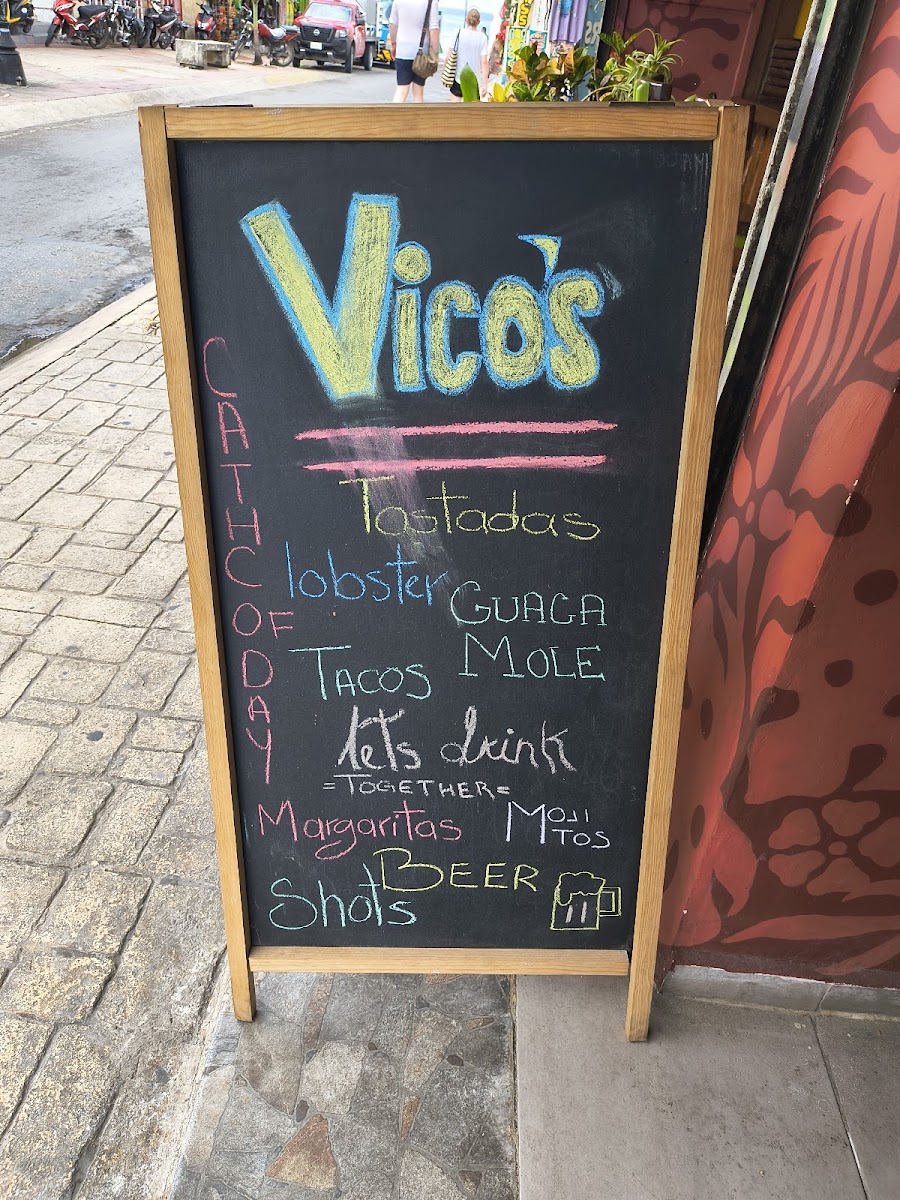 Vico's
CATHC OF DAY
Tostadas
lobster
GUACA
MOLE
TACOS
let's drink
=TOGETHER=
Margaritas
MOJI
TOS
BEER
Shots